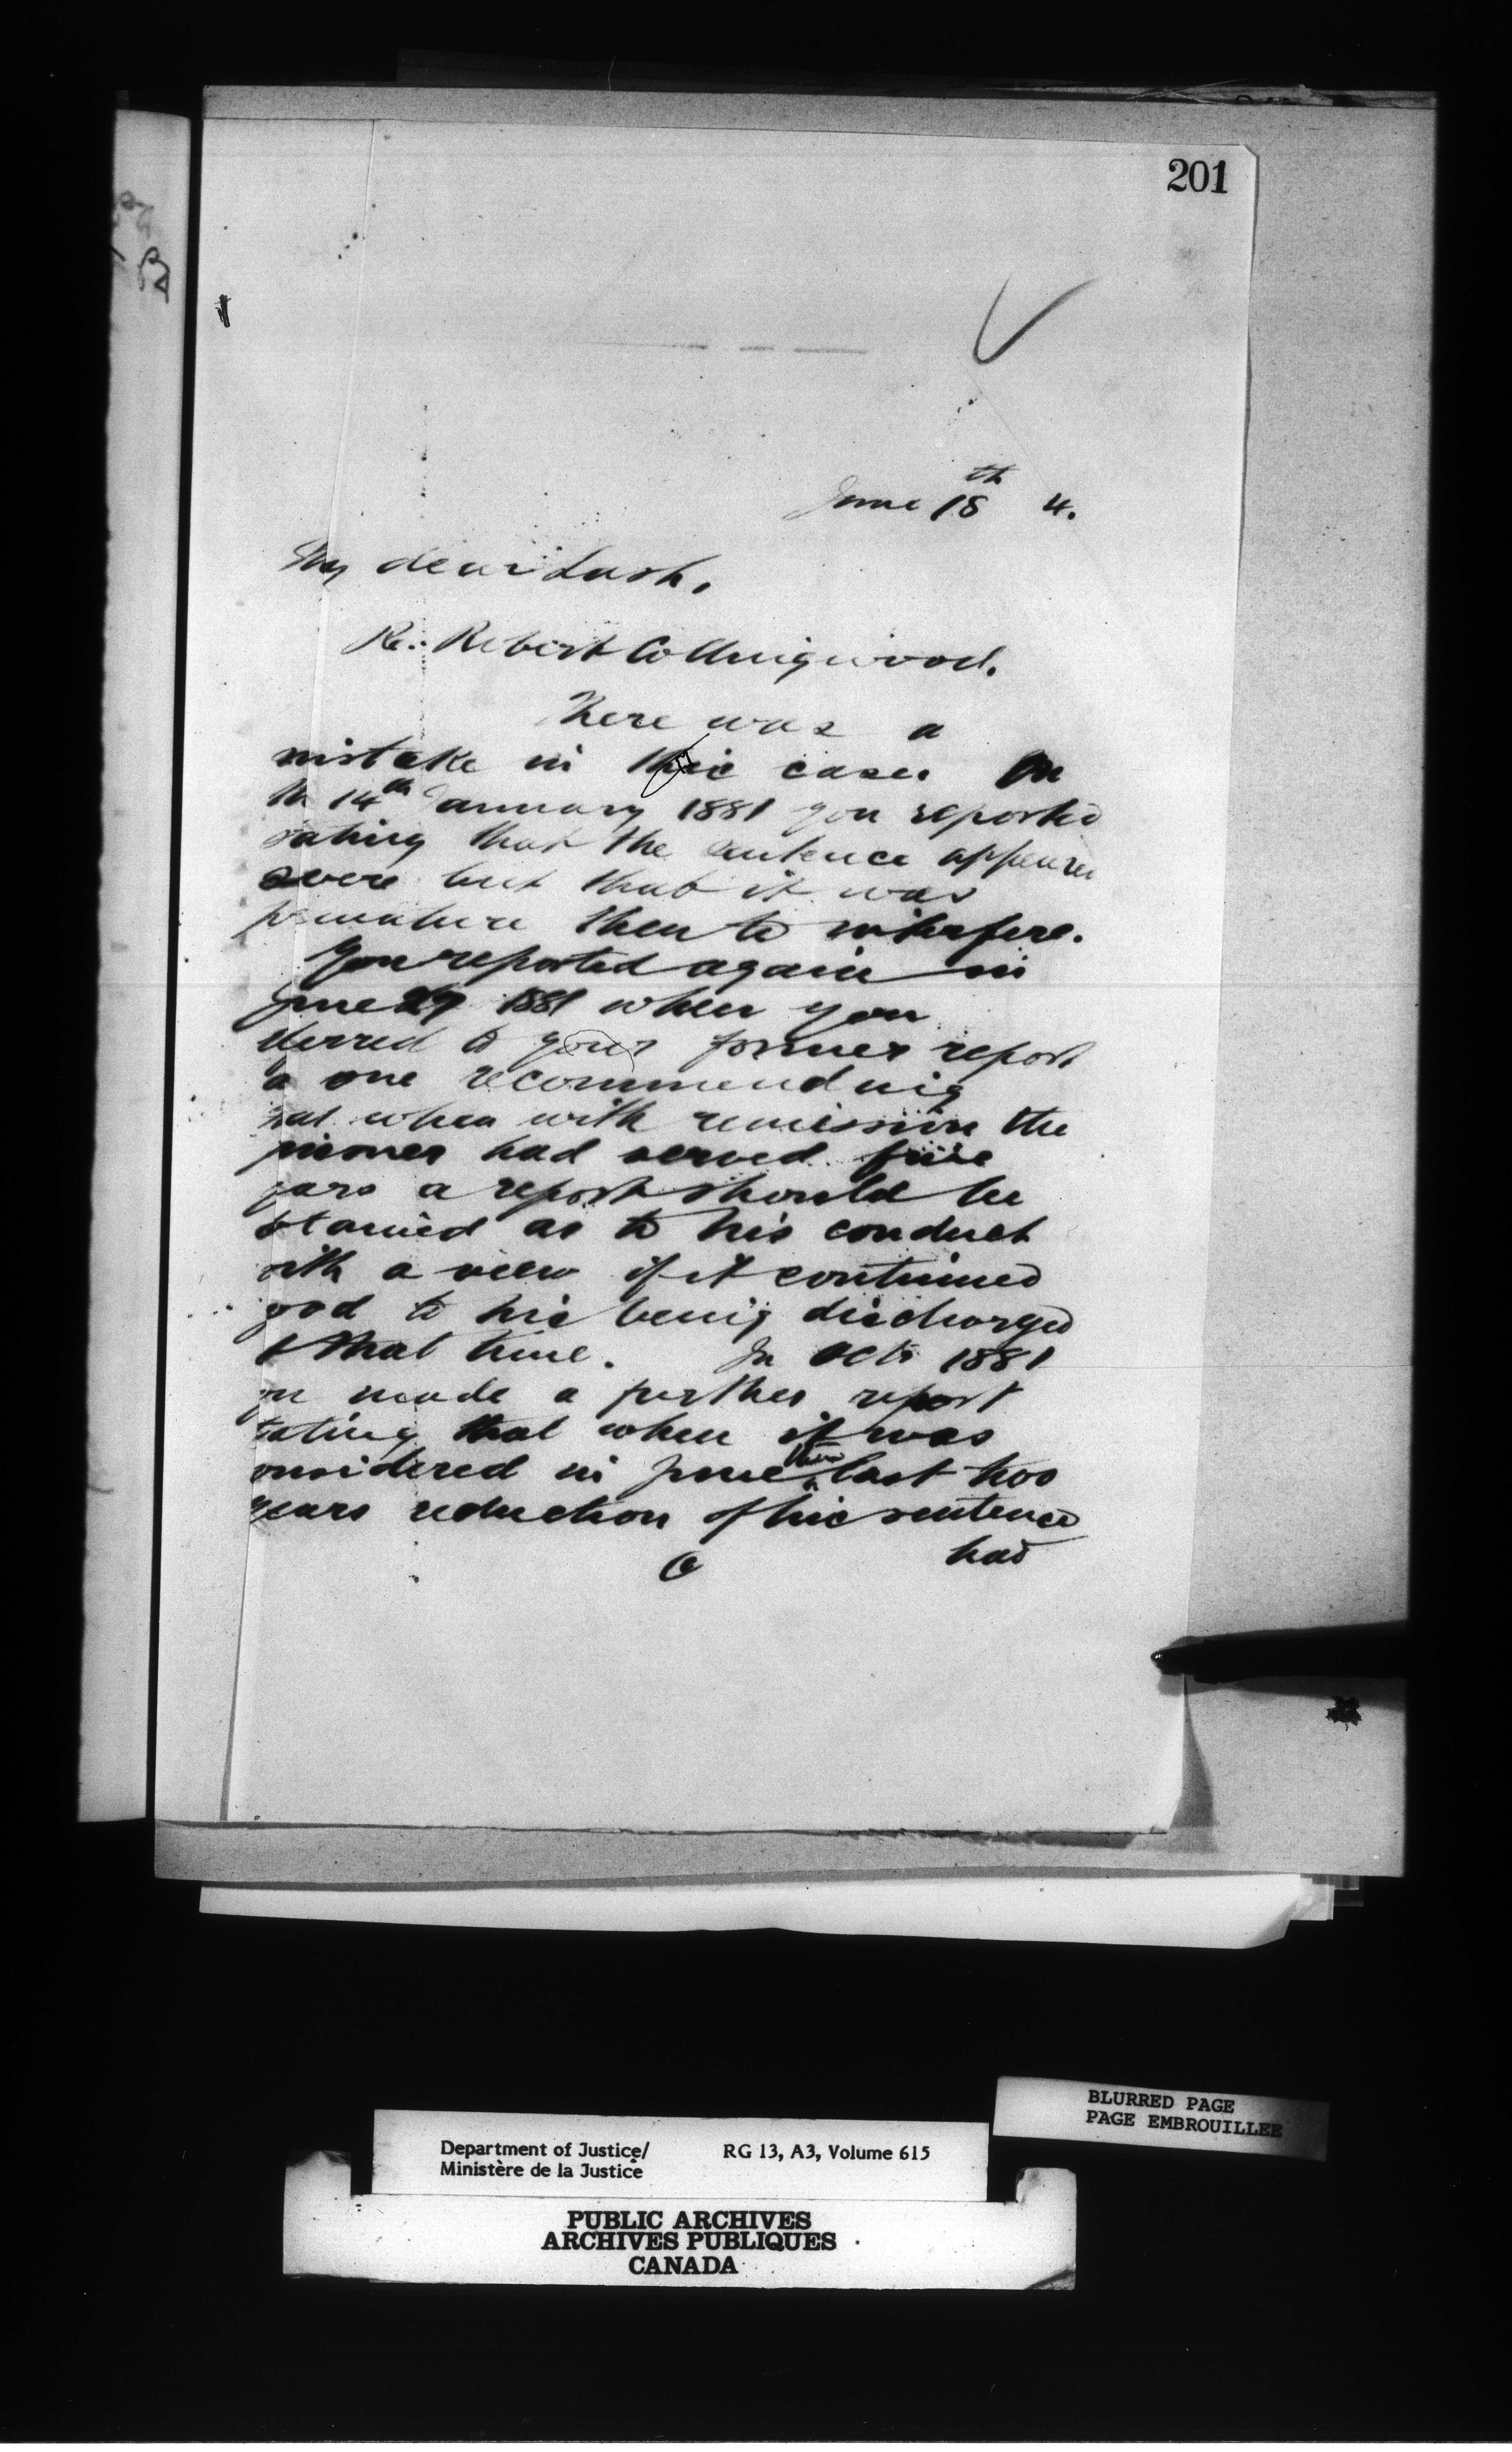 201
June 18th 4.
My dear Lash,
Re: Robert Collingwood.
There was a
mistake in this case. On
th 14th January 1881 you reported
tating that the sentence appeared
severe but that it was
premature then to interfere.
You reported again in
June 29 1881 when you
eferred to your former report
a one recommending
hat when with remission the
prisoner had served five
years a report should be
btained as to his conduct
with a view if it continued
good to his being discharged
t that time. In Octr 1881
you made a further report
tating that when it was
onsidered in June then last two
years reduction of his sentence
had
Department of Justice/
Ministère de la Justice
RG 13, A3, Volume 615
BLURRED PAGE
PAGE EMBROUILLEE
PUBLIC ARCHIVES
ARCHIVES PUBLIQUES
CANADA